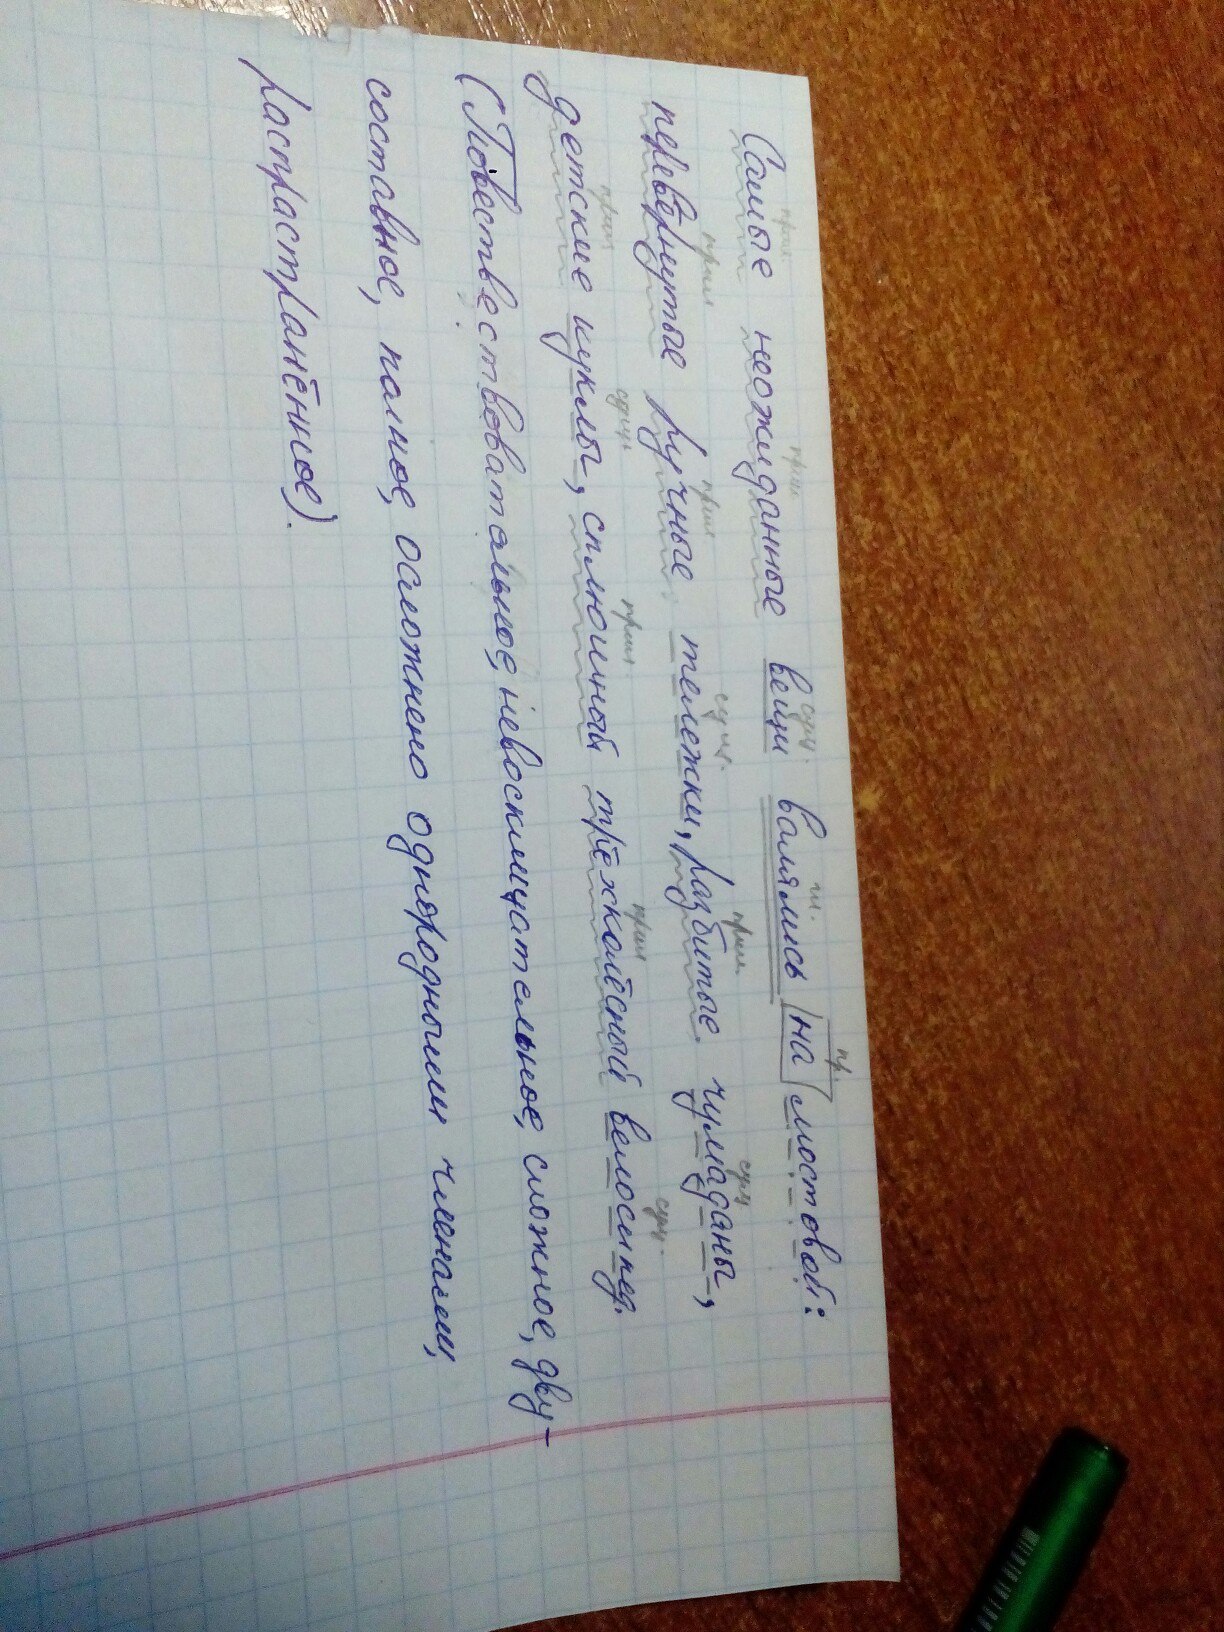 Самые неожиданные вещи валялись на мостовой:
перевёрнутые ручные тележки, разбитые чумаданы,
детские куклы, сплюшный трёхколёсный велосипед.
(Повествествовательное, невосклицательное, сложное, дву-
составное, полное, осложнено однородными членами,
распрастранённое).